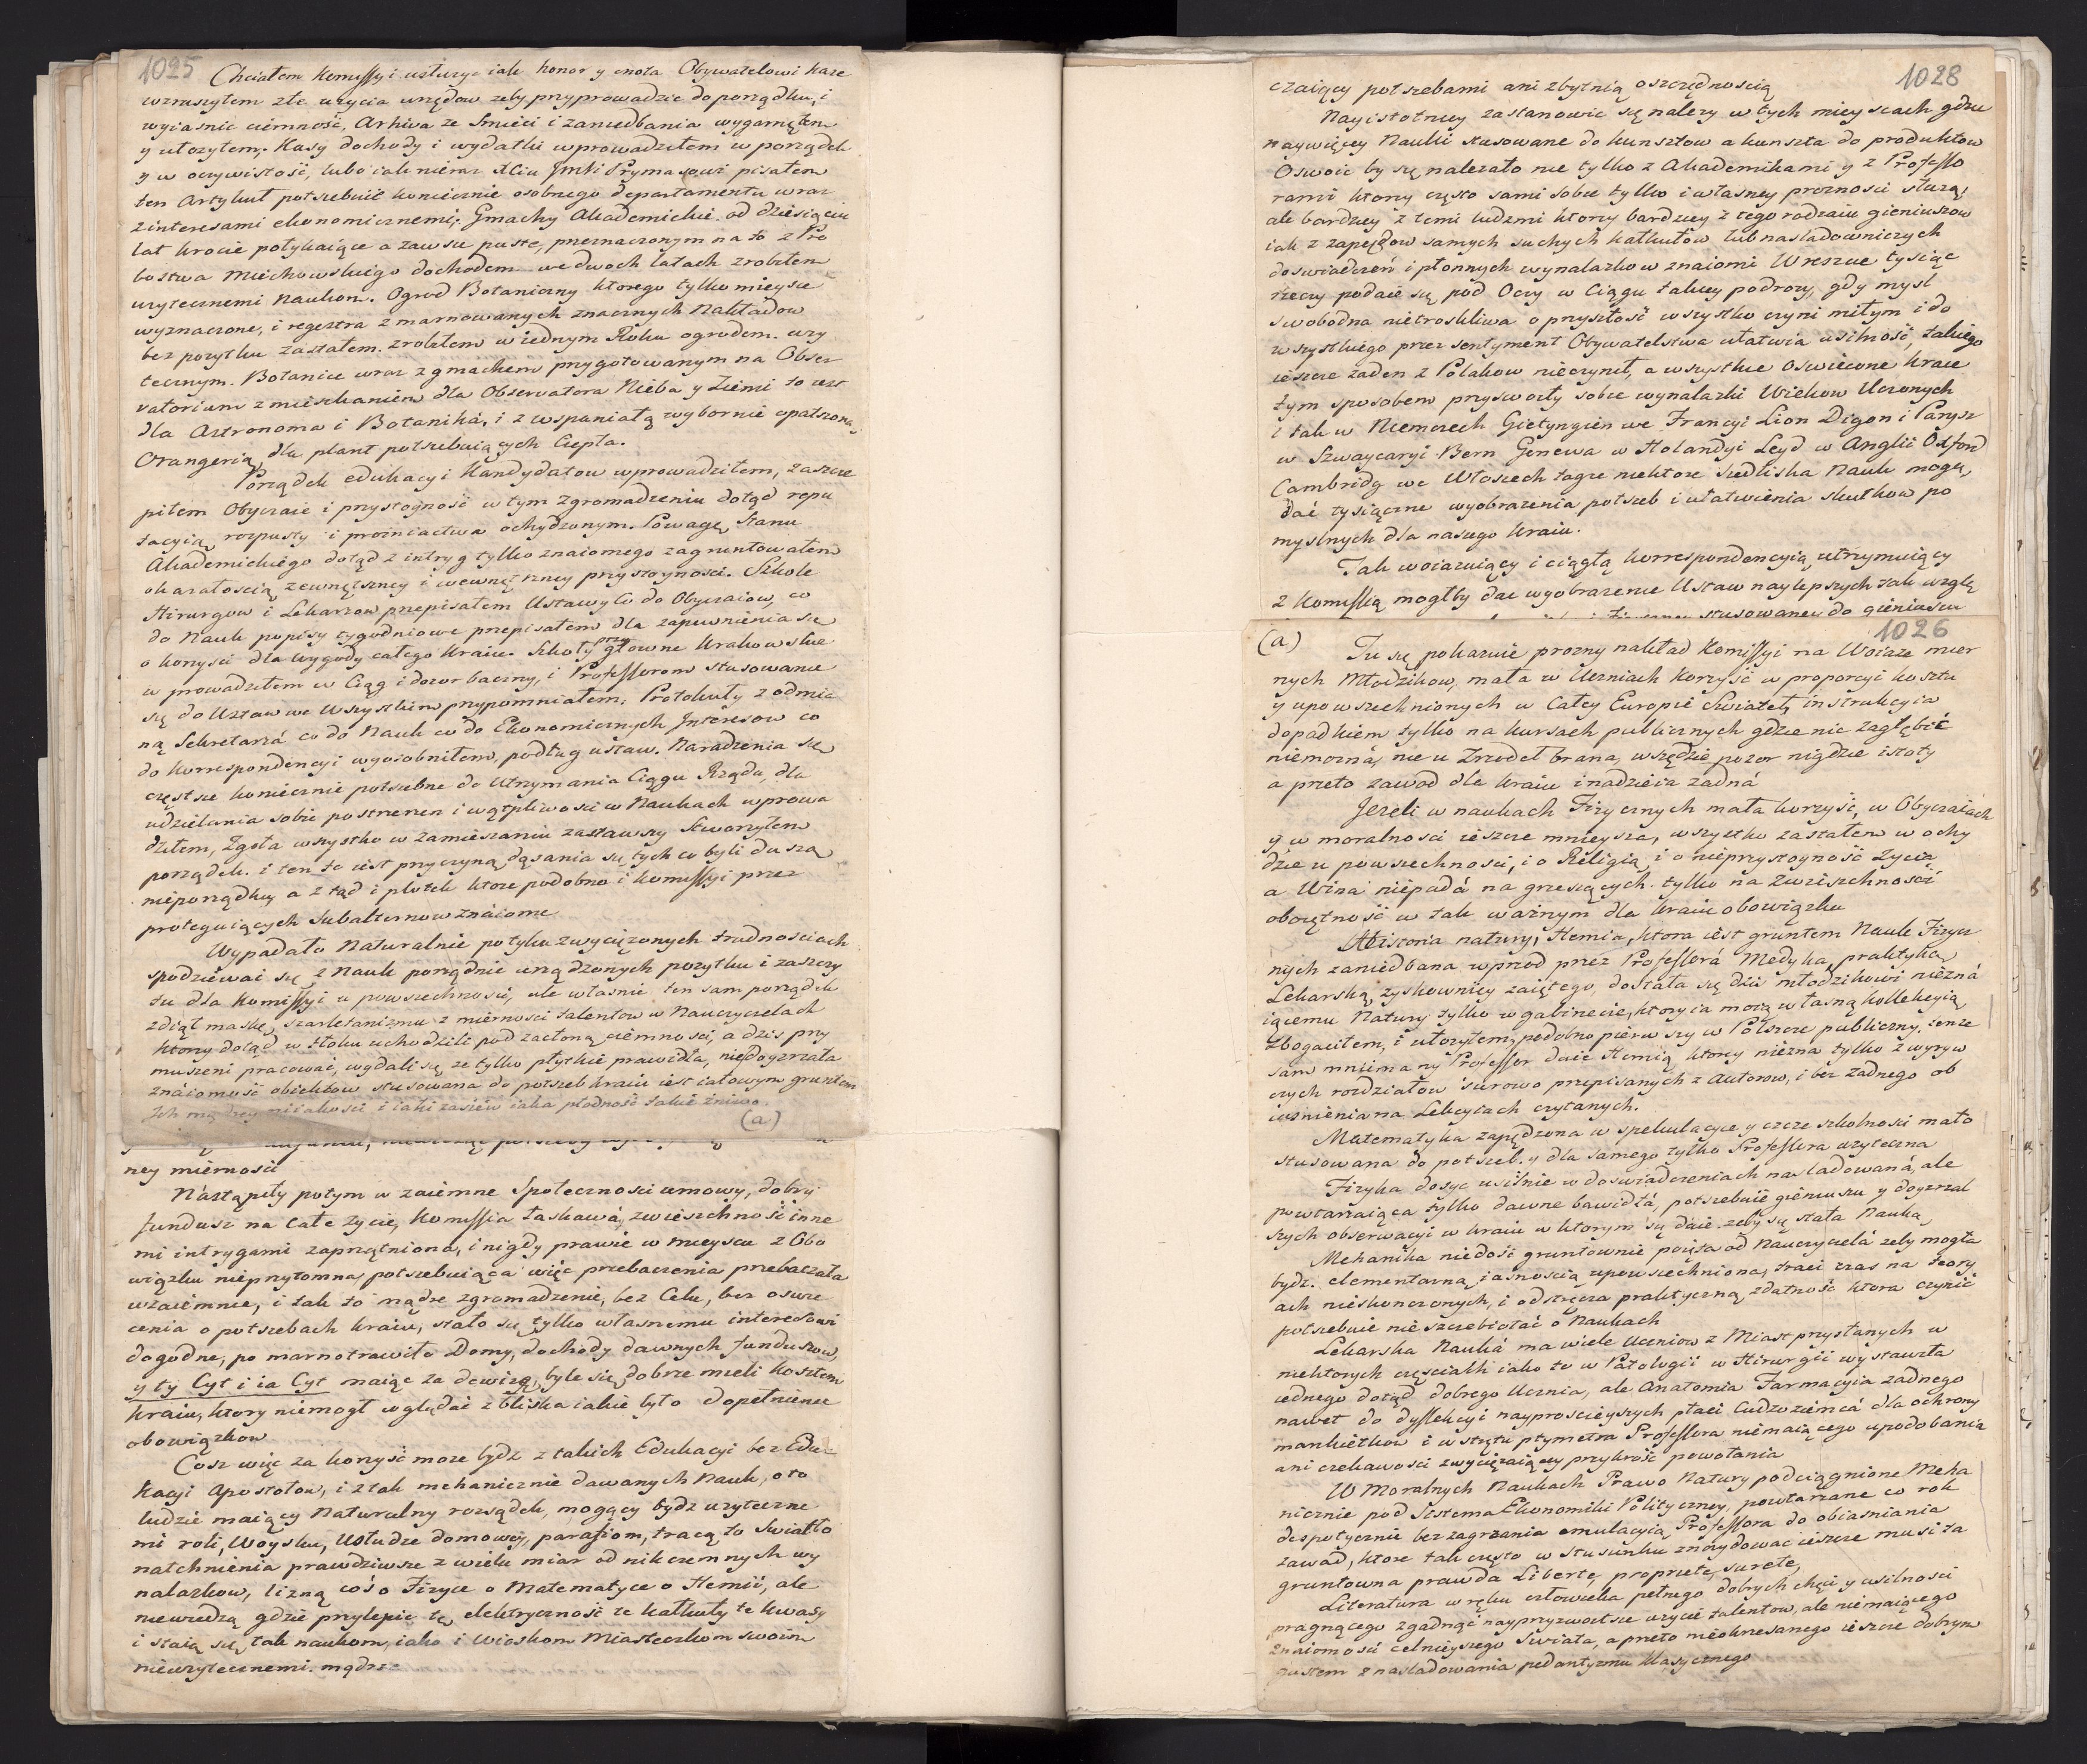 1025
Chciałem Komissyi usłużyć iak honor y cnota Obywatelowi każe
wzruszyłem złe użycia urzędow zeby przyprowadzic do porządku, i
wyiasnic ciemność, Arhiva ze Smieci i zaniedbania wygarnąłem
y ułożyłem; Kasy dochody i wydatki wprowadziłem w porządek
y w oczywistość, lubo iak nieraz Xciu Jmći Prymasowi pisałem
ten Artykuł potrzebuie koniecznie osobnego departamentu wraz
z interesami ekonomicznemi; Gmachy Akademickie od dziesiąciu
lat krocie połykaiące a zawsze puste, przeznaczonym na to z Pro
bostwa Miechowskiego dochodem we dwoch latach zrobiłem
uzytecznemi Naukom. Ogrod Botaniczny ktorego tylko mieysce
wyznaczone, i regestra zmarnowanych znacznych Nakładow
bez pozytku zastałem. zrobiłem w iednym Roku ogrodem uzy
tecznym. Botanice wraz z gmachem przygotowanym na Obser
vatorium z mieszkaniem dla Observatora Nieba y Ziemi to iest
dla Astronoma i Botanika, i z wspaniałą wybornie opatrzoną
Orangerią, dla plant potrzebuiących Ciepła.
Porządek edukacyi Kandydatow wprowadziłem, zaszcze
piłem Obyczaie i przystoyność w tym Zgromadzeniu dotąd repu
tacyią rozpusty i prozniactwa ochydzonym. Powagę Stanu
Akademickiego dotąd z intryg tylko znaiomego zagruntowałem
okazałością zewnętrzney i wewnętrzney przystoynosci. Szkole
Hirurgow i Lekarzow przepisałem Ustawy Co do Obyczaiow, co
do Nauk popisy tygodniowe przepisałem dla zapewnienia się
o korzysci dla wygody całego Kraiu. Szkoły przy głowne Krakowskie
w prowadziłem w Ciąg i dozor baczny, i Professorom stusowanie
się do Ustaw we Wszystkim przypomniałem, Protokuły z odmia
ną Sekretarzá co do Nauk co do Ekonomicznych Interesow co
do Korrespondencyi wyosobniłem, podług ustaw. Naradzenia się
częstsze koniecznie potrzebne do Utrzymania Ciągu Rządu, dla
udzielania sobie postrzezen i wątpliwosci w Naukach wprowa
dziłem, Zgoła wszystko w zamieszaniu zastawszy Stworzyłem
porządek. i ten to iest przyczyną dąsania się tych co byli duszą
nieporządku, a z tąd i plotek ktore podobno i Komissyi przez
proteguiących Subalternow znáiome
Wypadało Naturalnie po tylu zwyciężonych trudnościach
spodziewać się z Nauk porządnie urządzonych pozytku i zaszczy
tu dla Komissyi u powszechnosci, ale własnie ten sam porządek
zdiął maskę, szarletanizmu z miernosci talentow w Nauczycielach
ktorzy dotąd w tłoku uchodzili pod zasłoną ciemnosci, a dzis przy
muszeni pracować, wydali się, ze tylko płytkie prawidła, niedoyrzała
znáiomość obiektow stusowana do potrzeb kraiu iest iałowym gruntem
Ich mądrey i iaki zasiew iaka płodność takie żniwo.
(a)
ney miernosci
Nástąpiły potym w zaiemne Społecznosci umowy, dobry
fundusz na Całe życie, Komissia łaskawá, zwierzchność inne
mi intrygami zaprzątniona, i nigdy prawie w mieyscu z Obo
wiązku nieprzytomna, potrzebuiąca więc przebaczenia przebaczała
wzaiemnie, i tak to mądre zgromadzenie, bez Celu, bez oswie
cenia o potrzebach kraiu, stało się tylko własnemu interesowi
dogodne, po marnotrawiło Domy, dochody dawnych funduszow,
y ty Cyt i ia Cyt maiąc za dewizę, byle się dobrze mieli kosztem
kraiu, ktory niemogł wglądać z bliska iakie było dopełnienie
obowiązkow
Cosz więc za korzyść moze bydz z takich Edukacyi bez Edu-
kacyi Apostołow, i z tak mehanicznie dawanych Nauk, oto
ludzie maiący Naturalny rozsądek, mogący bydz uzyteczne
mi roli, Woysku, Usłudze domowey, parafiom, tracą to Swiatło
natchnienia prawdziwsze z wielu miar od nikczemnych wy
nalazkow, lizną coś o Fizyce o Matematyce o Hemii, ale
niewiedzą gdzie przylepic tę, elektryczność te kalkuły te kwasy
i staią się tak naukom, iako i Wioskom Miasteczkom swoim
nieuzytecznemi.
1028
czaiący potrzebami ani zbytnią oszczędnością
Nayistotniey zastanowic się nalezy w tych mieyscach gdzie
naywięcey Nauki stusowane do kunsztow a kunszta do produktow
Oswoic by się należało nie tylko z Akademikami y z Professo
rami ktorzy często sami sobie tylko i własney proznosci służą,
ale bardziey z temi ludzmi ktorzy bardziey z tego rodzaiu gieniuszow
iak z zapędow samych suchych kalkułow lub nasladowniczych
doswiadczeń i płonnych wynalazkow znaiomi Wreszcie tysiąc
rzeczy podaie się pod Oczy w Ciągu takiey podrozy, gdy mysl
swobodna nietroskliwa o przyszłość wszystko czyni miłym i do
wszystkiego przez sentyment Obywatelstwa ułatwia usilność, takiego
ieszcze zaden z Polakow nieczynił, a wszystkie Oswiecone kraie
tym sposobem przyswoiły sobie wynalazki Wiekow Uczonych
i tak w Niemczech Gietyngien we Francyi Lion Digon i Paryz
w Szwaycaryi Bern Genewa w Holandyi Leyd w Anglii Oxford
Cambridg we Włoszech tagze niektore siedliska Nauk mogą,
dać tysiączne wyobrazenia potrzeb i ułatwienia skutkow po
myslnych dla naszego kraiu.
Tak woiazuiący i ciągłą korrespondencyią utrzymuiący
z Komissią mogłby dac wyobrazenie Ustaw naylepszych tak wzglę
stusowaney do gieniuszu
1026
(a)
Tu się pokazuie prozny nakład Komissyi na Woiaze mier
nych Młodzikow, mała w Uczniach Korzyść w proporcyi kosztu
y upowszechnionych w Całey Europie Swiateł, instrukcyia
dopadkiem tylko na kursach publicznych gdzie nic zagłębić
niemozná, nie u Zrzodeł brana, wszędzie pozor nigdzie istoty
a przeto zawod dla kraiu i nadzieia zadná
Jezeli w naukach Fizycznych mała korzyść, w Obyczaiách
y w moralnosci ieszcze mnieysza, wszystko zastałem w ochy
dzie u powszechnosci, i o Religią i o nieprzystoyność Zycia
a Wina niepadá na grzeszących tylko na Zwierzchności
oboiętność w tak wáżnym dla kraiu obowiązku
Historia natury, Hemia, ktora iest gruntem Nauk Fizycz
nych zaniedbana wprzod przez Professorá Medyka, praktyką
Lekarską, zyskowniey zaiętego, dostała się dzis młodzikowi niezná
iącemu Natury tylko w gabinecie, ktory ia moią własną kollekcyią
zbogaciłem, i ułozyłem, podobno pierwszy w Polszcze publiczny, tenze
sam mniimany Professor daie Hemią, ktorey niezna tylko z wyryw
czych rozdziałow surowo przepisanych z Autorow, i bez zadnego ob
iasnienia na Lekcyiach czytanych.
Matematyka zapędzona w spekulacyie y czcze szkolnosci mało
stusowana do potrzeb. y dla samego tylko Professora uzyteczna
Fizyka dosyc usilnie w doswiadczeniach nasladowaná, ale
powtarzaiąca tylko dawne bawidłá, potrzebuie gieniuszu y doyrzal
szych obserwacyi w kraiu w ktorym się daie zeby się stała Nauką
Mehanika niedość gruntownie poięta od Nauczycielá zeby mogła
bydz elementarną iasnością upowszechniona, traci czas na teory
ach nieskonczonych, i odstręcza praktyczną zdatność ktora czynić
potrzebuie nie szczebiotać o Naukach
Lekarska Nauká ma wiele Uczniow z Miast przysłanych w
niektorych częsciakh iako to w Patologii w Hirurgii wystawiła
iednego dotąd dobrego Ucznia, ale Anatomia Farmacyia zadnego
nawet do dyssekcyi nayproscieyszych płaci Cudzoziemcá dla ochrony
mankietkow i wstrętu ptymetra Professora niemaiącego upodobania
ani ciekawosci zwyciężaiącey przykrość powołania
W Moralnych Naukach Prawo Natury podciągnione Meha
nicznie pod Sistema Ekonomiki Polityczney, powtarzane co rok
despotycznie bez zagrzania emulacyią Professora do obiasniania
zawad, ktore tak często w stusunku znáydować ieszcze musi ta
gruntowna prawda Liberte, propriete, surete,
Literatura w ręku człowieka pełnego dobrych chęci y usilnosci
pragnącego zgadnąć nayprzyzwoitsze uzycie talentow, ale niemaiącego
znaiomosci celnieyszego Swiata, a przeto nieokrzesanego ieszcze dobrym
gustem z nasladowania pedantyzmu klasycznego